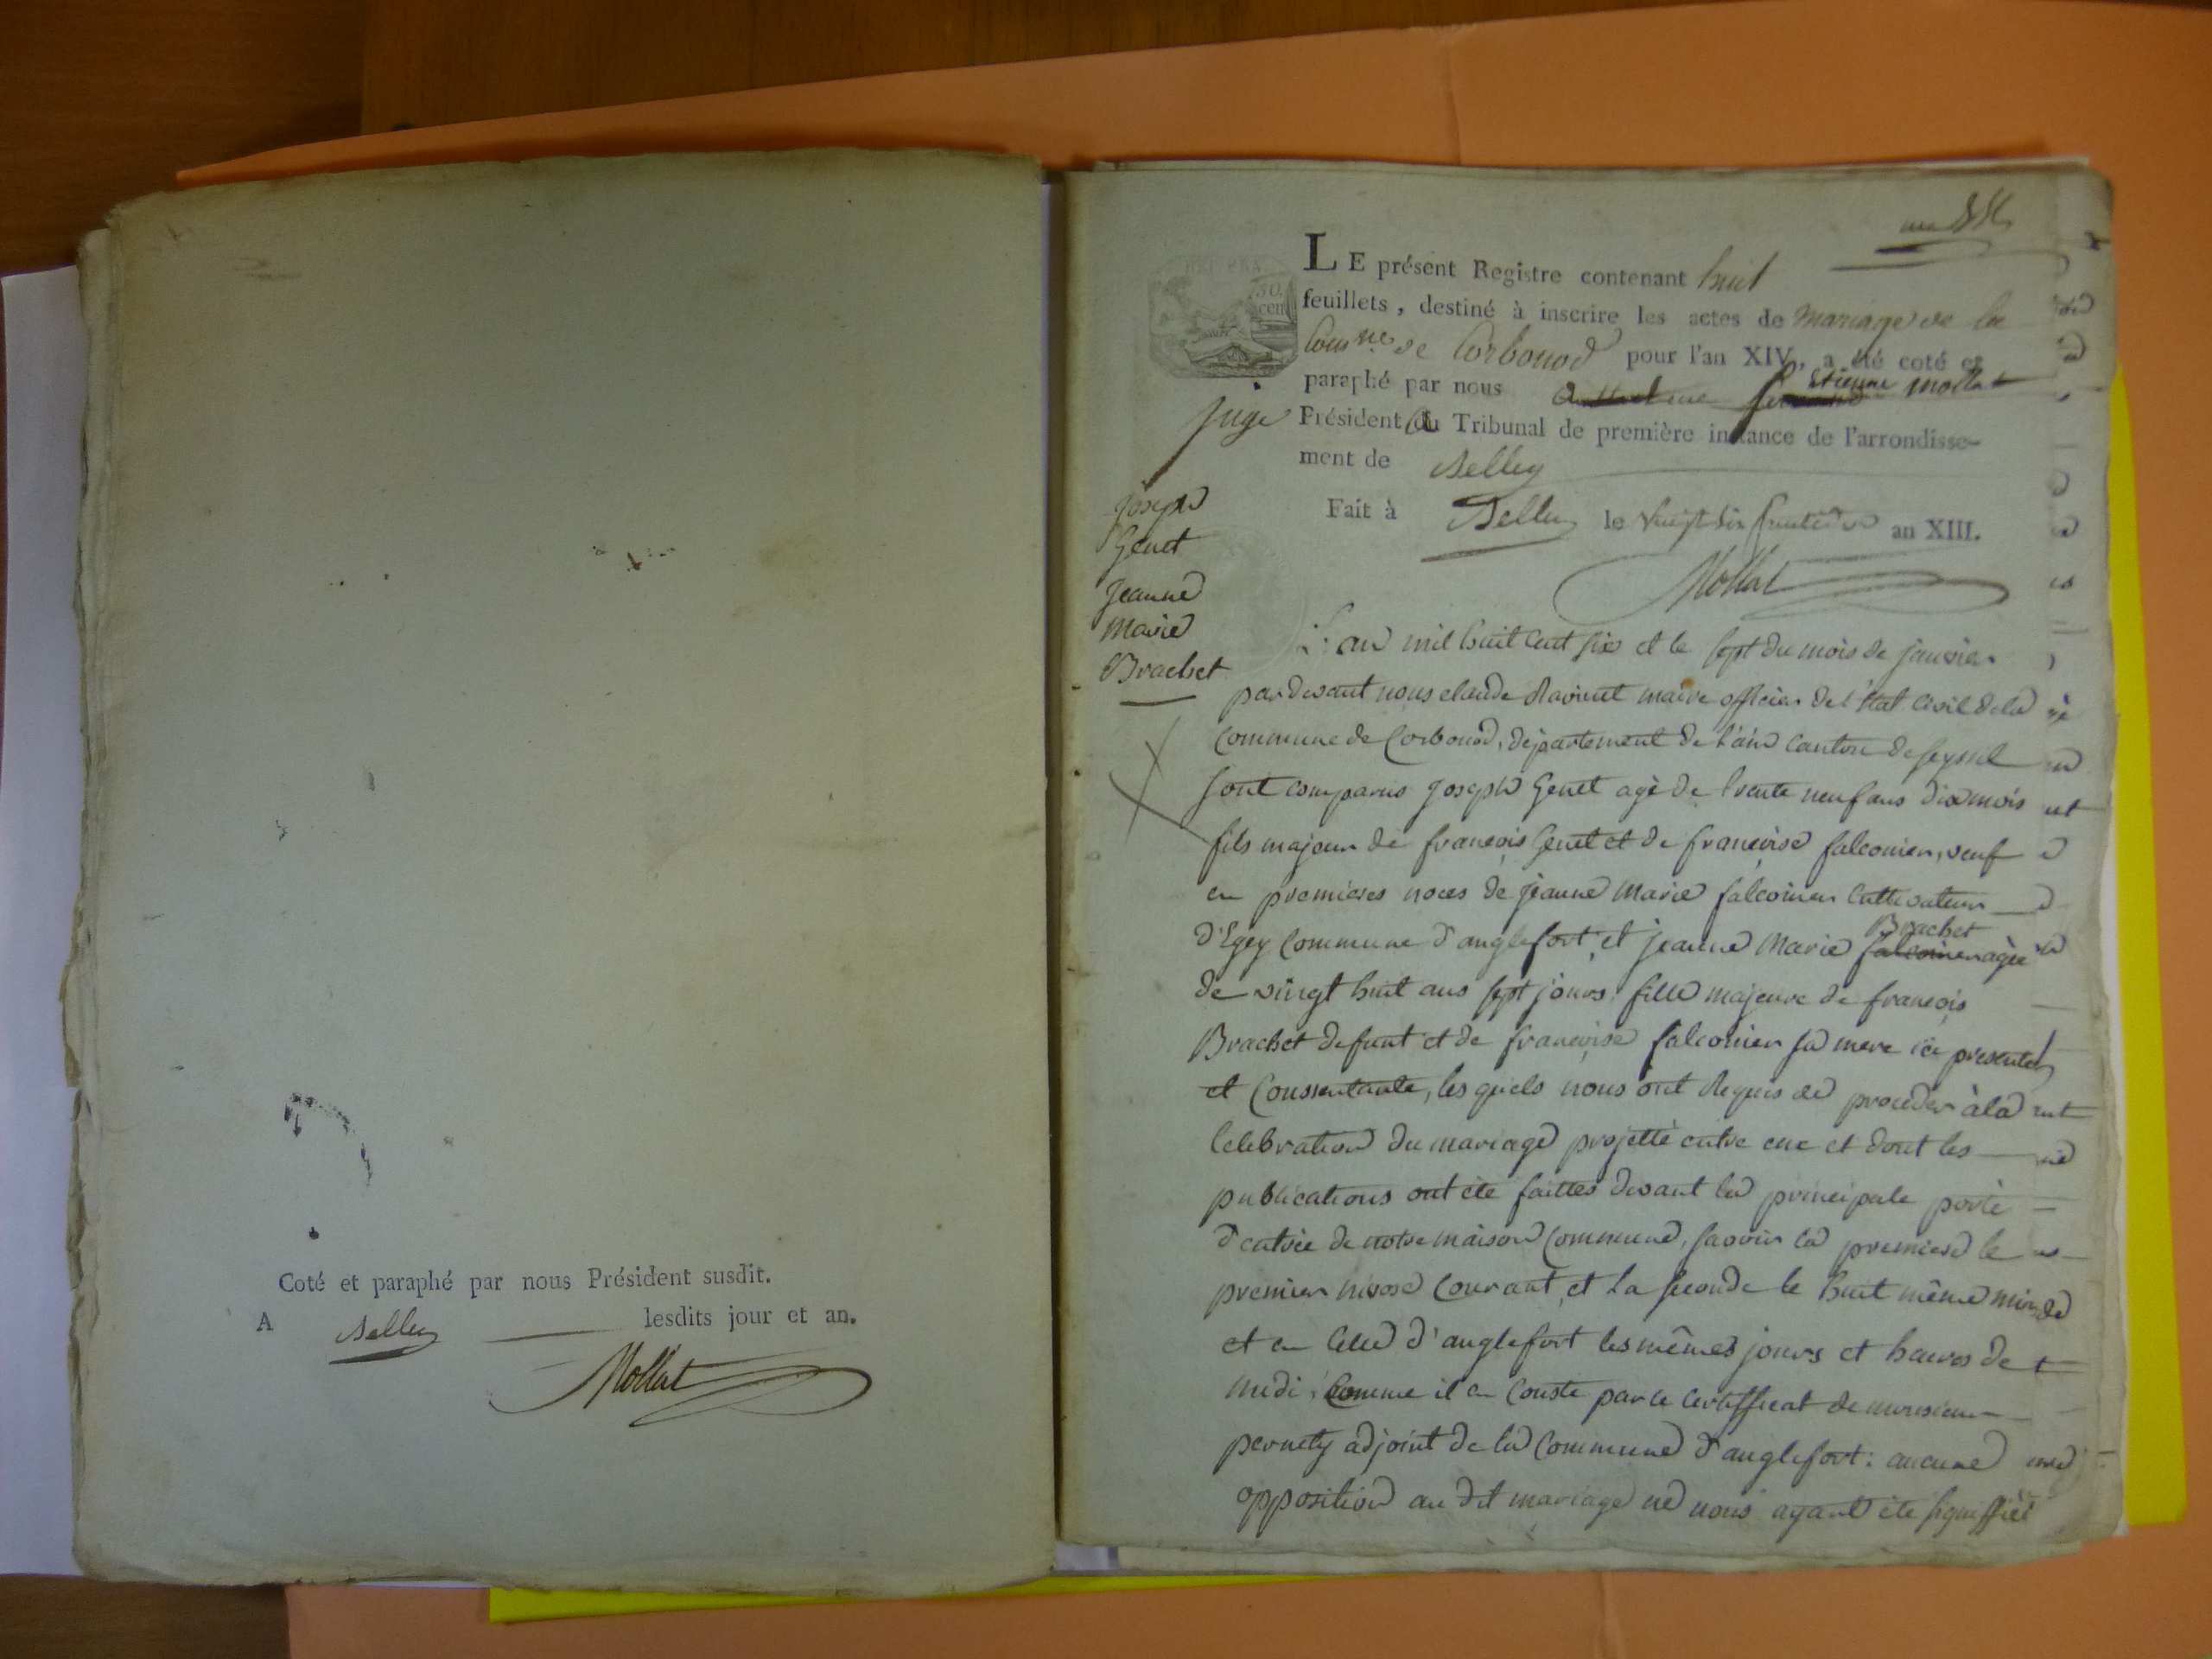 Coté et paraphé par nous Président susdit.
A Belley lesdits jour et an.
Mollat
LE présent Registre contenant huit
feuillets, destiné à inscrire les actes de mariage de la
Comne de Corbonod pour l'an XIV, a été coté et
paraphé par nous Etienne mollat
Juge Président du Tribunal de première instance de l'arrondisse-
ment de Belley
Fait à Belley le vingt six fructidor an XIII.
Mollat
Joseph
Genet
Jeanne
Marie
Brachet
L'an mil huit cent six et le sept du mois de janvier
pardevant nous claude Ravinet maire officier de l'état civil de la
Commune de Corbonod, département de l'ain canton de seyssel
sont comparus Joseph Genet agé de trente neuf ans dix mois
fils majeur de françois Genet et de françoise falconier, veuf
en premieres noces de jeanne Marie falconier cultivateur
d'Egey Commune d'anglefort, et jeanne Marie falconier Brachet agée
de vingt huit ans sept jours, fille majeure de françois
Brachet defunt et de françoise falconier sa mere ici presente
et Consentante, les quels nous ont Requis de proceder à la
Celebration du mariage projetté entre eux et dont les
publications ont été faittes devant la principale porte
d'entrée de notre maison Commune, savoir la premiere le
premier nivose Courant, et la seconde le huit même mois
et en celle d'anglefort les mêmes jours et heures de
midi, Comme il en Conste par le Certifficat de monsieur
pernety adjoint de la Commune d'anglefort: aucune
opposition au dit mariage ne nous ayant été signiffiée